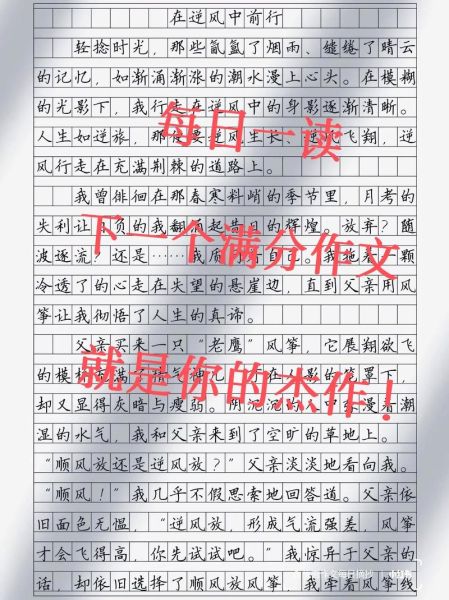 在逆风中前行
轻捻时光，那些氤氲了烟雨、缱绻了晴云
的记忆，如渐涌渐涨的潮水漫上心头。在模糊
的光影下，我行走在逆风中的身影逐渐清晰。
人生如逆旅，那便要逆风生长、逆风飞翔，逆
风行走在充满荆棘的道路上。
每日一读
我曾徘徊在那春寒料峭的季节里，月考的
失利让自负的我翻涌起昔日的辉煌。放弃？随
波逐流？还是……我质问着自己。我拖着一颗
下一个满分作文
冷透了的心走在失望的悬崖边，直到父亲用风
筝让我彻悟了人生的真谛。
父亲买来一只“老鹰”风筝，它展翔欲飞
的模样充满了精气神儿，在阴影的笼罩下，
就是你的杰作！
却又显得灰暗与瘦弱。阴沉沉的中弥漫着潮
湿的水气，我和父亲来到了空旷的草地上。
“顺风放还是逆风放？”父亲淡淡地看向我。
“顺风！”我几乎不假思索地回答道。父亲依
旧面色无愠，“逆风放，形成气流强差，风筝
才会飞得高，你先试试吧。”我惊异于父亲的
话，却依旧选择了顺风放风筝，我牵着风筝线
每日摘抄